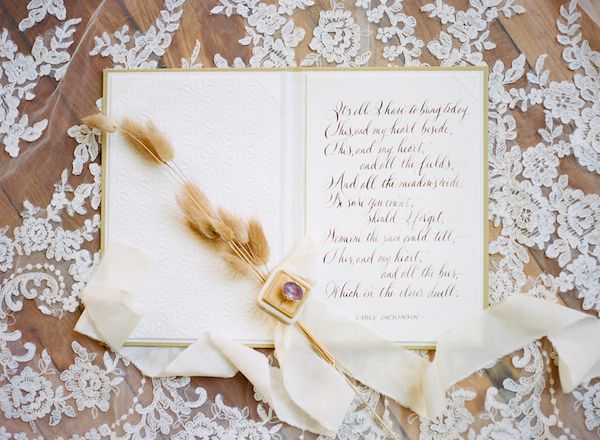 It's all I have to bring today
This, and my heart beside,
This, and my heart,
and all the fields,
And all the meadows wide.
Be sure you count,
should I forget,
Someone the sum could tell,
This, and my heart,
and all the bees,
Which in the clover dwell.
EMILY DICKINSON